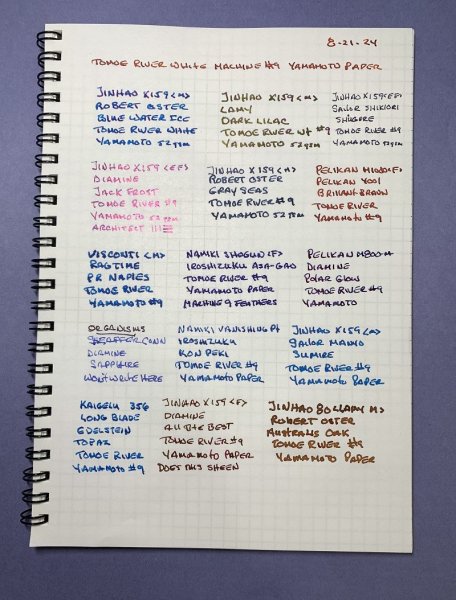 8-21-24
TOMOE RIVER WHITE MACHINE #9 YAMAMOTO PAPER
JINHAO X159 <M>
ROBERT OSTER
BLUE WATER ICE
TOMOE RIVER WHITE
YAMAMOTO 52gsm
JINHAO X159 <M>
LAMY
DARK LILAC
TOMOE RIVER WT #9
YAMAMOTO 52gsm
JINHAO X159 <EF>
SAILOR SHIKIORI
SHIGURE
TOMOE RIVER #9
YAMAMOTO 52gsm
JINHAO X159 <EF>
DIAMINE
JACK FROST
TOMOE RIVER #9
YAMAMOTO 52gsm
ARCHITECT
JINHAO X159 <M>
ROBERT OSTER
GRAY SEAS
TOMOE RIVER #9
YAMAMOTO 52gsm
PELIKAN
PELIKAN YOOL
BRILLIANT BROWN
TOMOE RIVER
YAMAMOTO #9
VISCONTI <M>
RAGTIME
PR NAPLES
TOMOE RIVER
YAMAMOTO #9
NAMIKI SHOGUN <F>
IROSHIZUKU ASA-GAO
TOMOE RIVER #9
YAMAMOTO PAPER
MACHINE 9 FEATHERS
PELIKAN M800 M
DIAMINE
POLAR GLOW
TOMOE RIVER #9
YAMAMOTO
ORGANISMS
SHEAFFER CONN
DIAMINE
SAPPHIRE
WONT WRITE HERE
NAMIKI VANISHING Pt
IROSHIZUKU
KON PEKI
TOMOE RIVER #9
YAMAMOTO PAPER
JINHAO X159 <M>
SAILOR MANYO
SUMIRE
TOMOE RIVER #9
YAMAMOTO PAPER
KAIGELU 356
LONG BLADE
EDELSTEIN
TOPAZ
TOMOE RIVER
YAMAMOTO #9
JINHAO X159 <F>
DIAMINE
ALL THE BEST
TOMOE RIVER #9
YAMAMOTO PAPER
DOES THIS SHEEN
JINHAO 80 LAMY M>
ROBERT OSTER
AUSTRALIS OAK
TOMOE RIVER #9
YAMAMOTO PAPER